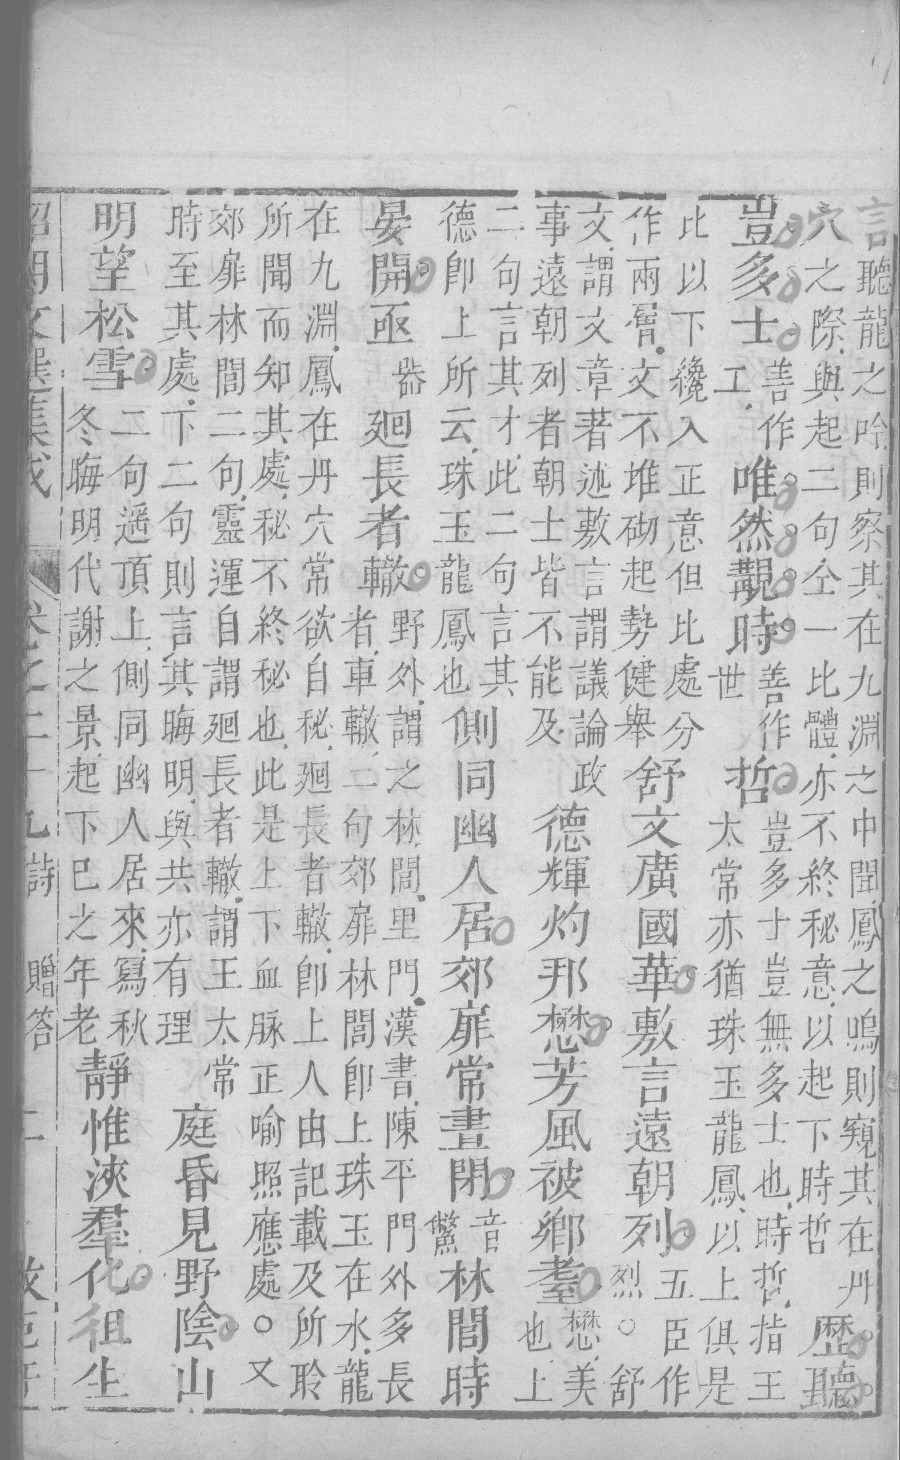 言聽龍之吟則察其在九淵之中聞鳳之嗚則窺其在丹
穴之際與起二句仝一比體亦不終秘意以起下時哲歷聽
豈多士善作工唯然覯時善作世哲豈多士豈無多士也時哲指王
太常亦猶珠玉龍鳳以上俱是
比以下纔入正意但比處分
作兩層文不堆砌起勢健舉舒文廣國華敷言遠朝列五臣作烈○舒
文謂文章著述敷言謂議論政
事遠朝列者朝士皆不能及德輝灼邦懋芳風被鄉耋懋美也上
二句言其才此二句言其
德即上所云珠玉龍鳳也側同幽人居郊扉常晝閉音鷩林閭時
晏開亟器廻長者轍野外謂之林閭里門漢書陳平門外多長
者車轍二句郊扉林閭即上珠玉在水龍
在九淵鳳在丹穴常欲自秘廻長者轍即上人由記載及所聆
所聞而知其處秘不終秘也此是上下血脉正喻照應處○又
郊扉林閭二句靈運自謂廻長者轍謂王太常
時至其處下二句則言其晦明與共亦有理庭昏見野陰山
明望松雪二句遥頂上側同幽人居來寫秋
冬晦明代謝之景起下已之年老靜惟浹羣化徂生
昭明文選集成 卷之二十九 詩 贈答